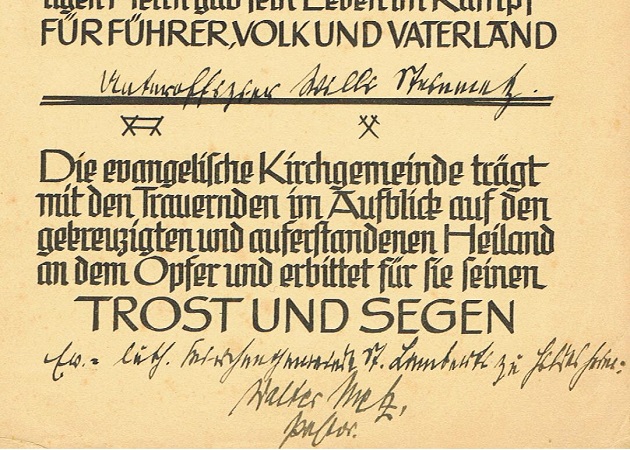 gab sein Leben im Kampf
FÜR FÜHRER, VOLK UND VATERLAND
Unteroffizier Willi Steinmetz.
Die evangelische Kirchgemeinde trägt
mit den Trauernden im Aufblick auf den
gekreuzigten und auferstandenen Heiland
an dem Opfer und erbittet für sie seinen
TROST UND SEGEN
Ev. = luth. Kirchengemeinde St. Lamberti zu
Walter Metz,
Pastor.